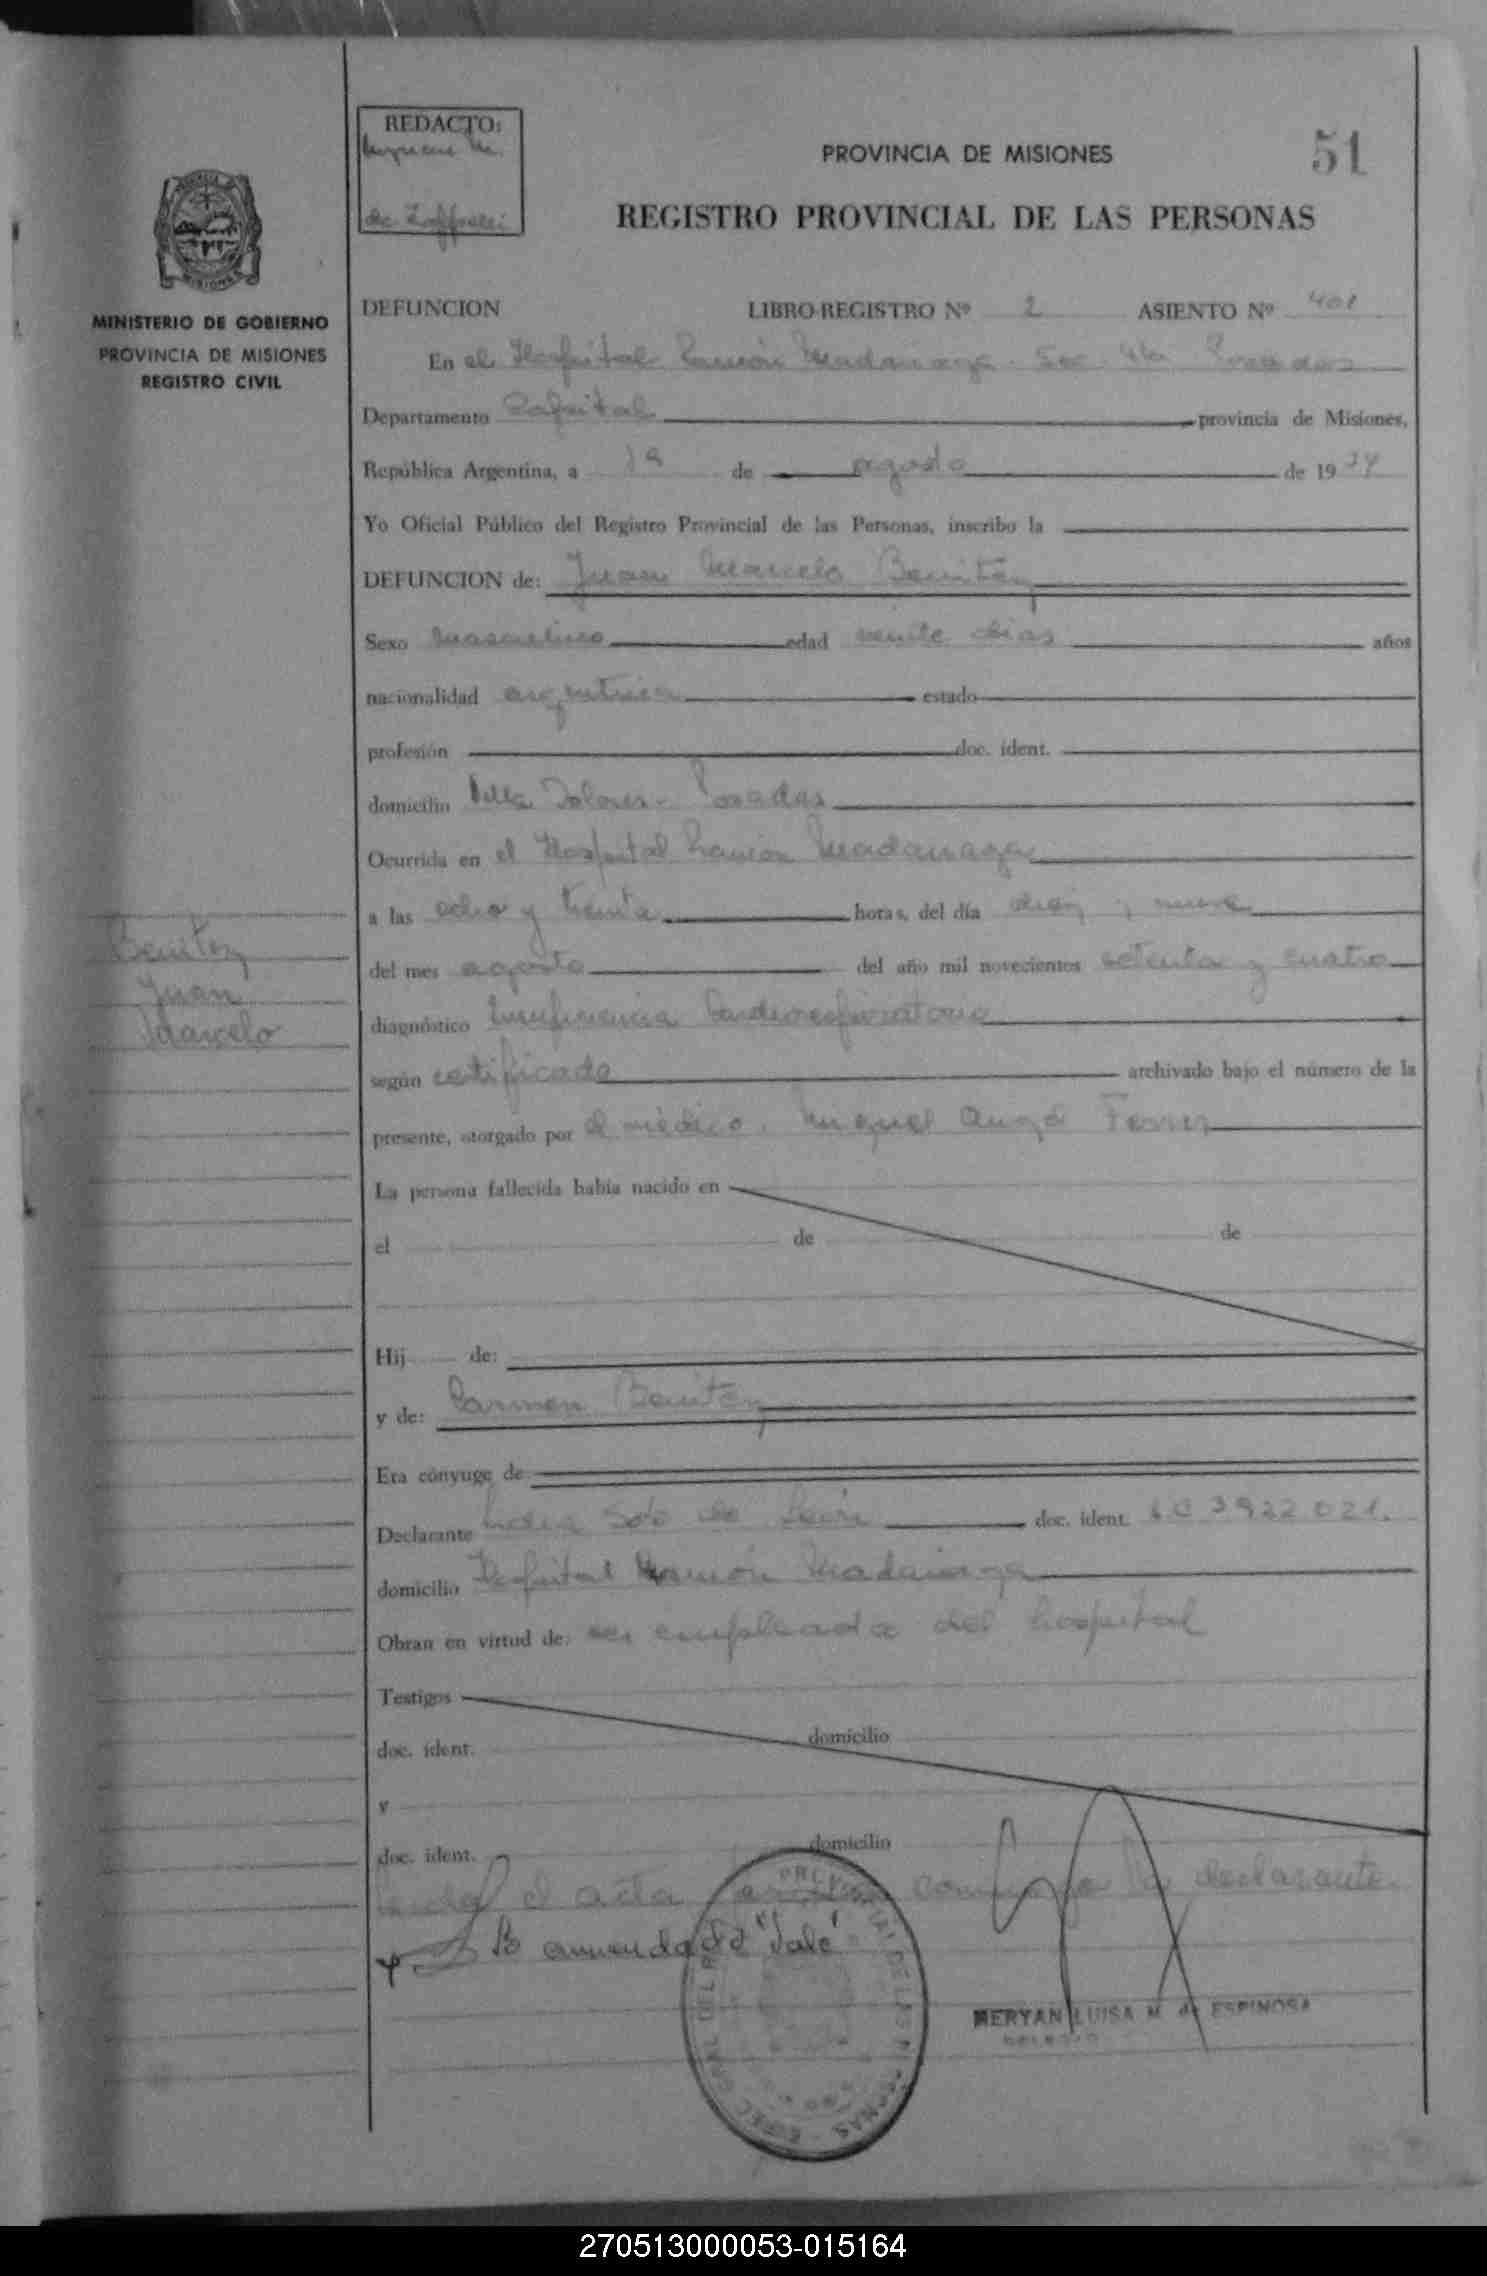 REDACTO:
de
PROVINCIA DE MISIONES
51
REGISTRO PROVINCIAL DE LAS PERSONAS
MINISTERIO DE GOBIERNO
PROVINCIA DE MISIONES
REGISTRO CIVIL
DEFUNCION LIBRO-REGISTRO Nº 2 ASIENTO Nº 401
En el Hospital Ramón Madariaga - Sec. 4ta Posadas
Departamento Capital provincia de Misiones,
República Argentina, a 19 de agosto de 1974
Yo Oficial Público del Registro Provincial de las Personas, inscribo la
DEFUNCION de: Juan Marcelo Benitez
Sexo masculino edad veinte dias años
nacionalidad argentina estado
profesión doc. ident.
domicilio Villa Dolores - Posadas
Ocurrida en el Hospital Ramón Madariaga
a las ocho y treinta horas, del día diez y nueve
Benitez
Juan
Marcelo
del mes agosto del año mil novecientos setenta y cuatro
diagnóstico Insuficiencia Cardiorespiratoria
según certificado archivado bajo el número de la
presente, otorgado por el médico. Miguel Angel Ferrer
La persona fallecida había nacido en
el de de
Hij de:
y de: Carmen Benitez
Era cónyuge de
Declarante Soto de doc. ident. LC 3922021.
domicilio Hospital Ramón Madariaga
Obran en virtud de: ser empleada del hospital
Testigos
doc. ident. domicilio
y
doc. ident. domicilio
el acta la declarante
Lo enmendado "Vale"
MERYAN LUISA M. de ESPINOSA
270513000053-015164